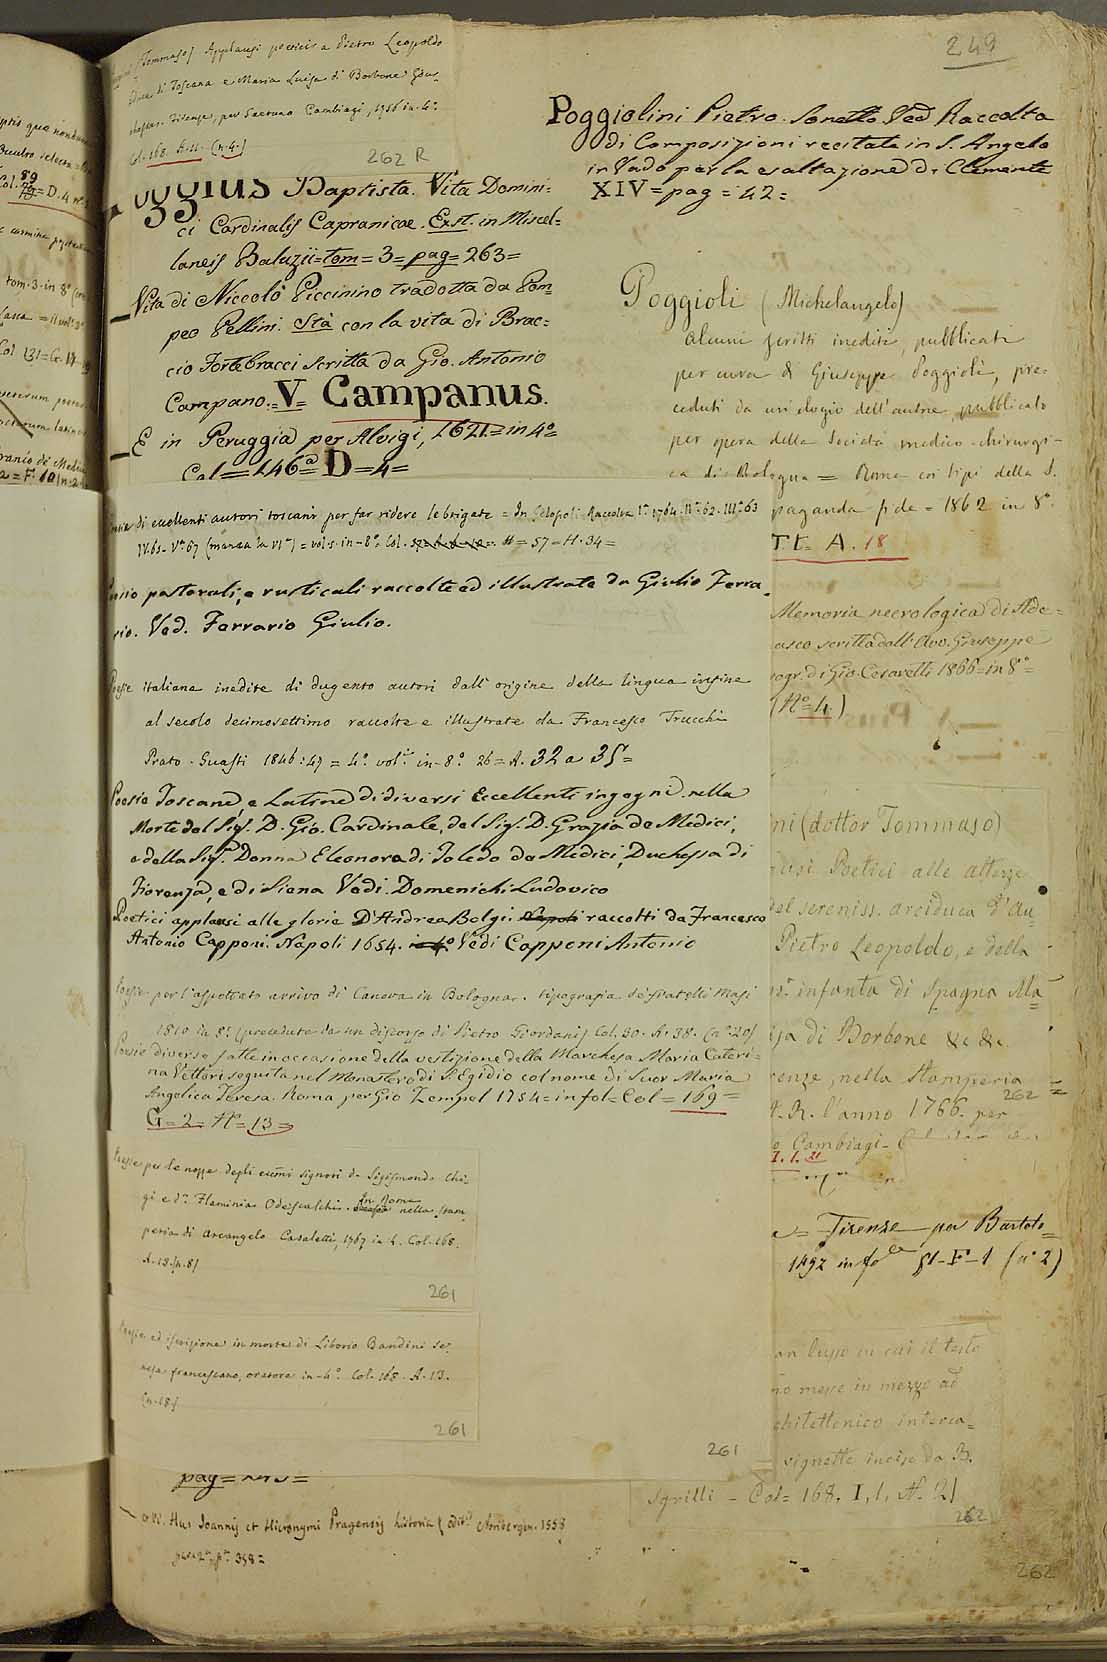 249
(Tommaso) Applausi poetici a Pietro Leopoldo
di Toscana e Maria Luisa di Borbone
Firenze, per Gaetano Cambiagi, 1766 in 4.°
Col. 168. (n. 4.)
262 R
Poggiolini Pietro. Sonetto Ved Raccolta
di Composizioni recitate in S. Angelo
in Vado per la esaltazione di Clemente
XIV = pag = 42 =
Baptista. Vita Domini=
ci Cardinalis Capranicae. Ext. in Miscel=
laneis Baluzii = tom = 3 = pag = 263 =
Vita di Niccolò Piccinino tradotta da Pom=
peo Pellini. Stà con la vita di Brac=
cio Fortebracci scritta da Gio. Antonio
Campano. = V = Campanus.
E in Peruggia per Alvigi, 1621 = in 4° =
Col = 146ª D = 4 =
Poggioli (Michelangelo)
alcuni scritti inediti, pubblicati
per cura di Giuseppe Poggioli, pre=
ceduti da un elogio dell'autore, pubblicato
per opera della Società medico-chirurgi=
ca di Bologna = Roma coi tipi della S.
paganda fide = 1862 in 8°.
T.t. A. 18
di eccellenti autori toscani per far ridere le brigate = In Gelopoli Raccolta I.ª 1760. II.ª 62. III.ª 63
IV. 65. V.ª 67 (manca la VI.ª) = vol. 5. in-8.° Col. H = 57 = H. 34 =
pastorali, e rusticali raccolte ed illustrate da Giulio Ferra
rio. Ved. Ferrario Giulio.
Memoria necrologica di Ade=
scritta dall'Avv. Giuseppe
di Gio. Cesaretti 1866 = in 8° =
(N° = 4)
Poesie italiane inedite di dugento autori dall'origine della lingua infino
al secolo decimosettimo raccolte e illustrate da Francesco Trucchi
Prato. Guasti 1846:47 = 4. vol. in-8.° 26 = A. 32 a 35 =
Poesie Toscane, e Latine di diversi Eccellenti ingegni nella
Morte del Sig. D. Gio. Cardinale, del Sig. D. Grazia de Medici,
e della Sig.ª Donna Eleonora di Toledo de Medici, Duchessa di
Fiorenza, e di Siena Vedi. Domenichi Ludovico
Poetici applausi alle glorie D'Andrea Bolgi. Napoli raccolti da Francesco
Antonio Capponi. Napoli 1654. in 4° Vedi Capponi Antonio
ni (dottor Tommaso)
Poetici alle altezze
del sereniss. arciduca d'Au
Pietro Leopoldo, e della
infanta di Spagna Ma
di Borbone &c &c.
nella Stamperia
R. l'anno 1766. per
Cambiagi
I. 1. 21
262
Poesie per l'aspettato arrivo di Canova in Bologna. tipografia de' fratelli Masi
1810 in 8.° (precedute da un discorso di Pietro Giordani) Col. 30. A. 38. (n. 20)
Poesie diverse fatte in occasione della vestizione della Marchesa Maria Cateri=
na Vettori seguita nel Monastero di S. Egidio col nome di Suor Maria
Angelica Teresa. Roma per Gio Zempel 1754 = in fol = Col = 169 =
G = 2 = N° = 13 =
Poesie per le nozze degli eccmi signori D. Sigismondo Chi=
gi e D.ª Flaminia Odescalchi. In Roma nella stam=
peria di Arcangelo Casaletti, 1767 in 4. Col. 168.
A. 13. (n. 8)
261
Firenze per Bartolo=
1492 in fo 51-F-1 (n° 2)
Poesie ed iscrizione in morte di Liborio Bandini se=
nese francescano, oratore in-4.° Col. 168. A. 13.
(n. 18)
261
261
in cui il testo
mezzo ad
chitettonico
vignette incise da B.
Sgrilli - Col = 168. I, 1, N. 21
262
pag =
Hus Joannis et Hieronymi Pragensis historia 1558
358 =
262